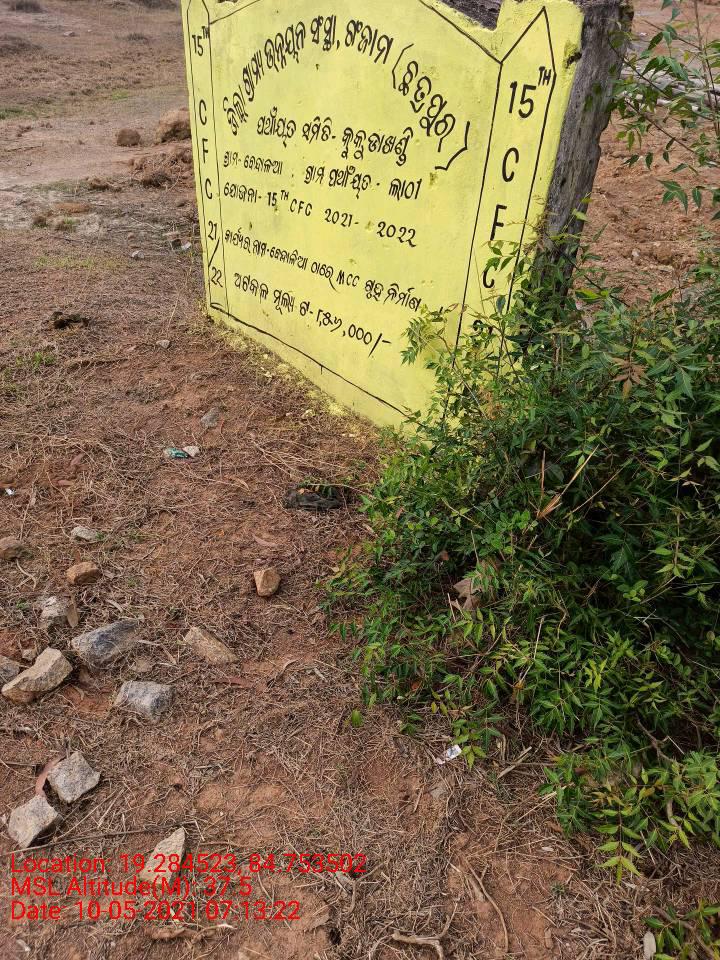 ଜିଲ୍ଲା ଗ୍ରାମ୍ୟ ଉନ୍ନୟନ ସଂସ୍ଥା, ଗଞ୍ଜାମ (ଛତ୍ରପୁର)
ପଞ୍ଚାୟତ ସମିତି - କୁକୁଡାଖଣ୍ଡି
ଗ୍ରାମ - ଗ୍ରାମ ପଞ୍ଚାୟତ - ଲାଠୀ
ଯୋଜନା - 15TH CFC 2021 - 2022
କାର୍ଯ୍ୟର ନାମ - ଠାରେ MCC ଗୃହ ନିର୍ମାଣ
ଅଟକଳ ମୂଲ୍ୟ ଟ -
15TH
C
F
C
21/22
15TH
C
F
C
Location: 19.284523, 84.753502
MSL Altitude(M): 37.5
Date: 10-05-2021 07:13:22